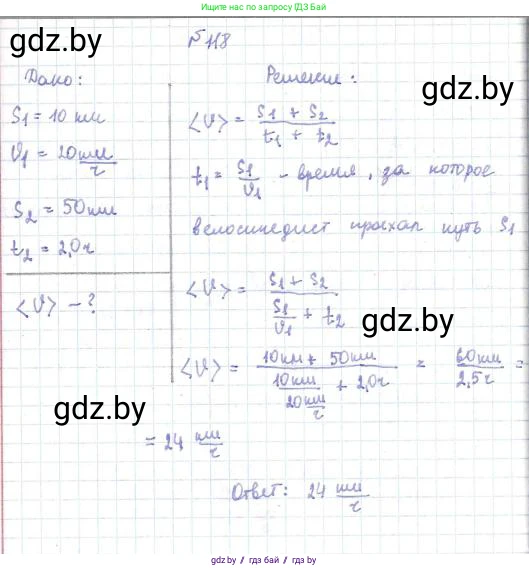 присвоено по запросу ГДЗ Бай
gdz.by
№ 118
Дано:
S₁ = 10 км
υ₁ = 20 км/ч
S₂ = 50 км
t₂ = 2,0 ч
<υ> - ?
Решение:
<υ> = (S₁ + S₂)/(t₁ + t₂)
t₁ = S₁/υ₁ - время, за которое
велосипедист проехал путь S₁
<υ> = (S₁ + S₂)/(S₁/υ₁ + t₂)
gdz.by
<υ> = (10 км + 50 км)/(10 км/20 км/ч + 2,0 ч) = 60 км/2,5 ч =
gdz.by
= 24 км/ч
Ответ: 24 км/ч
gdz.by / гдз бай / gdz by